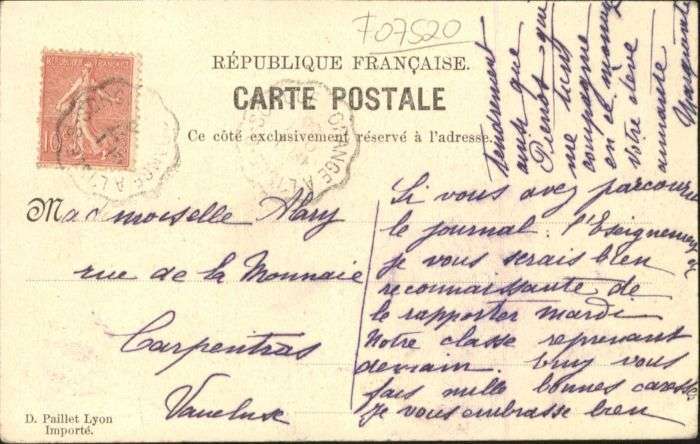 F07520
RÉPUBLIQUE FRANÇAISE.
CARTE POSTALE
Ce côté exclusivement réservé à l'adresse.
RÉPUBLIQUE FRANÇAISE
10
ORANGE A L'ISLE
Mademoiselle Alary
rue de la Monnaie
Carpentras
Vaucluse
D. Paillet Lyon
Importé.
Si vous avez parcouru
le journal: l'Eseignement
je vous serais bien
reconnaissante de
le rapporter mardi
Notre classe reprenant
demain. buy vous
fais mille bonnes caresses
Je vous embrasse bien
tendrement
ainsi que
Pierrot que
me
compagne
en ce moment
votre élève
aimante